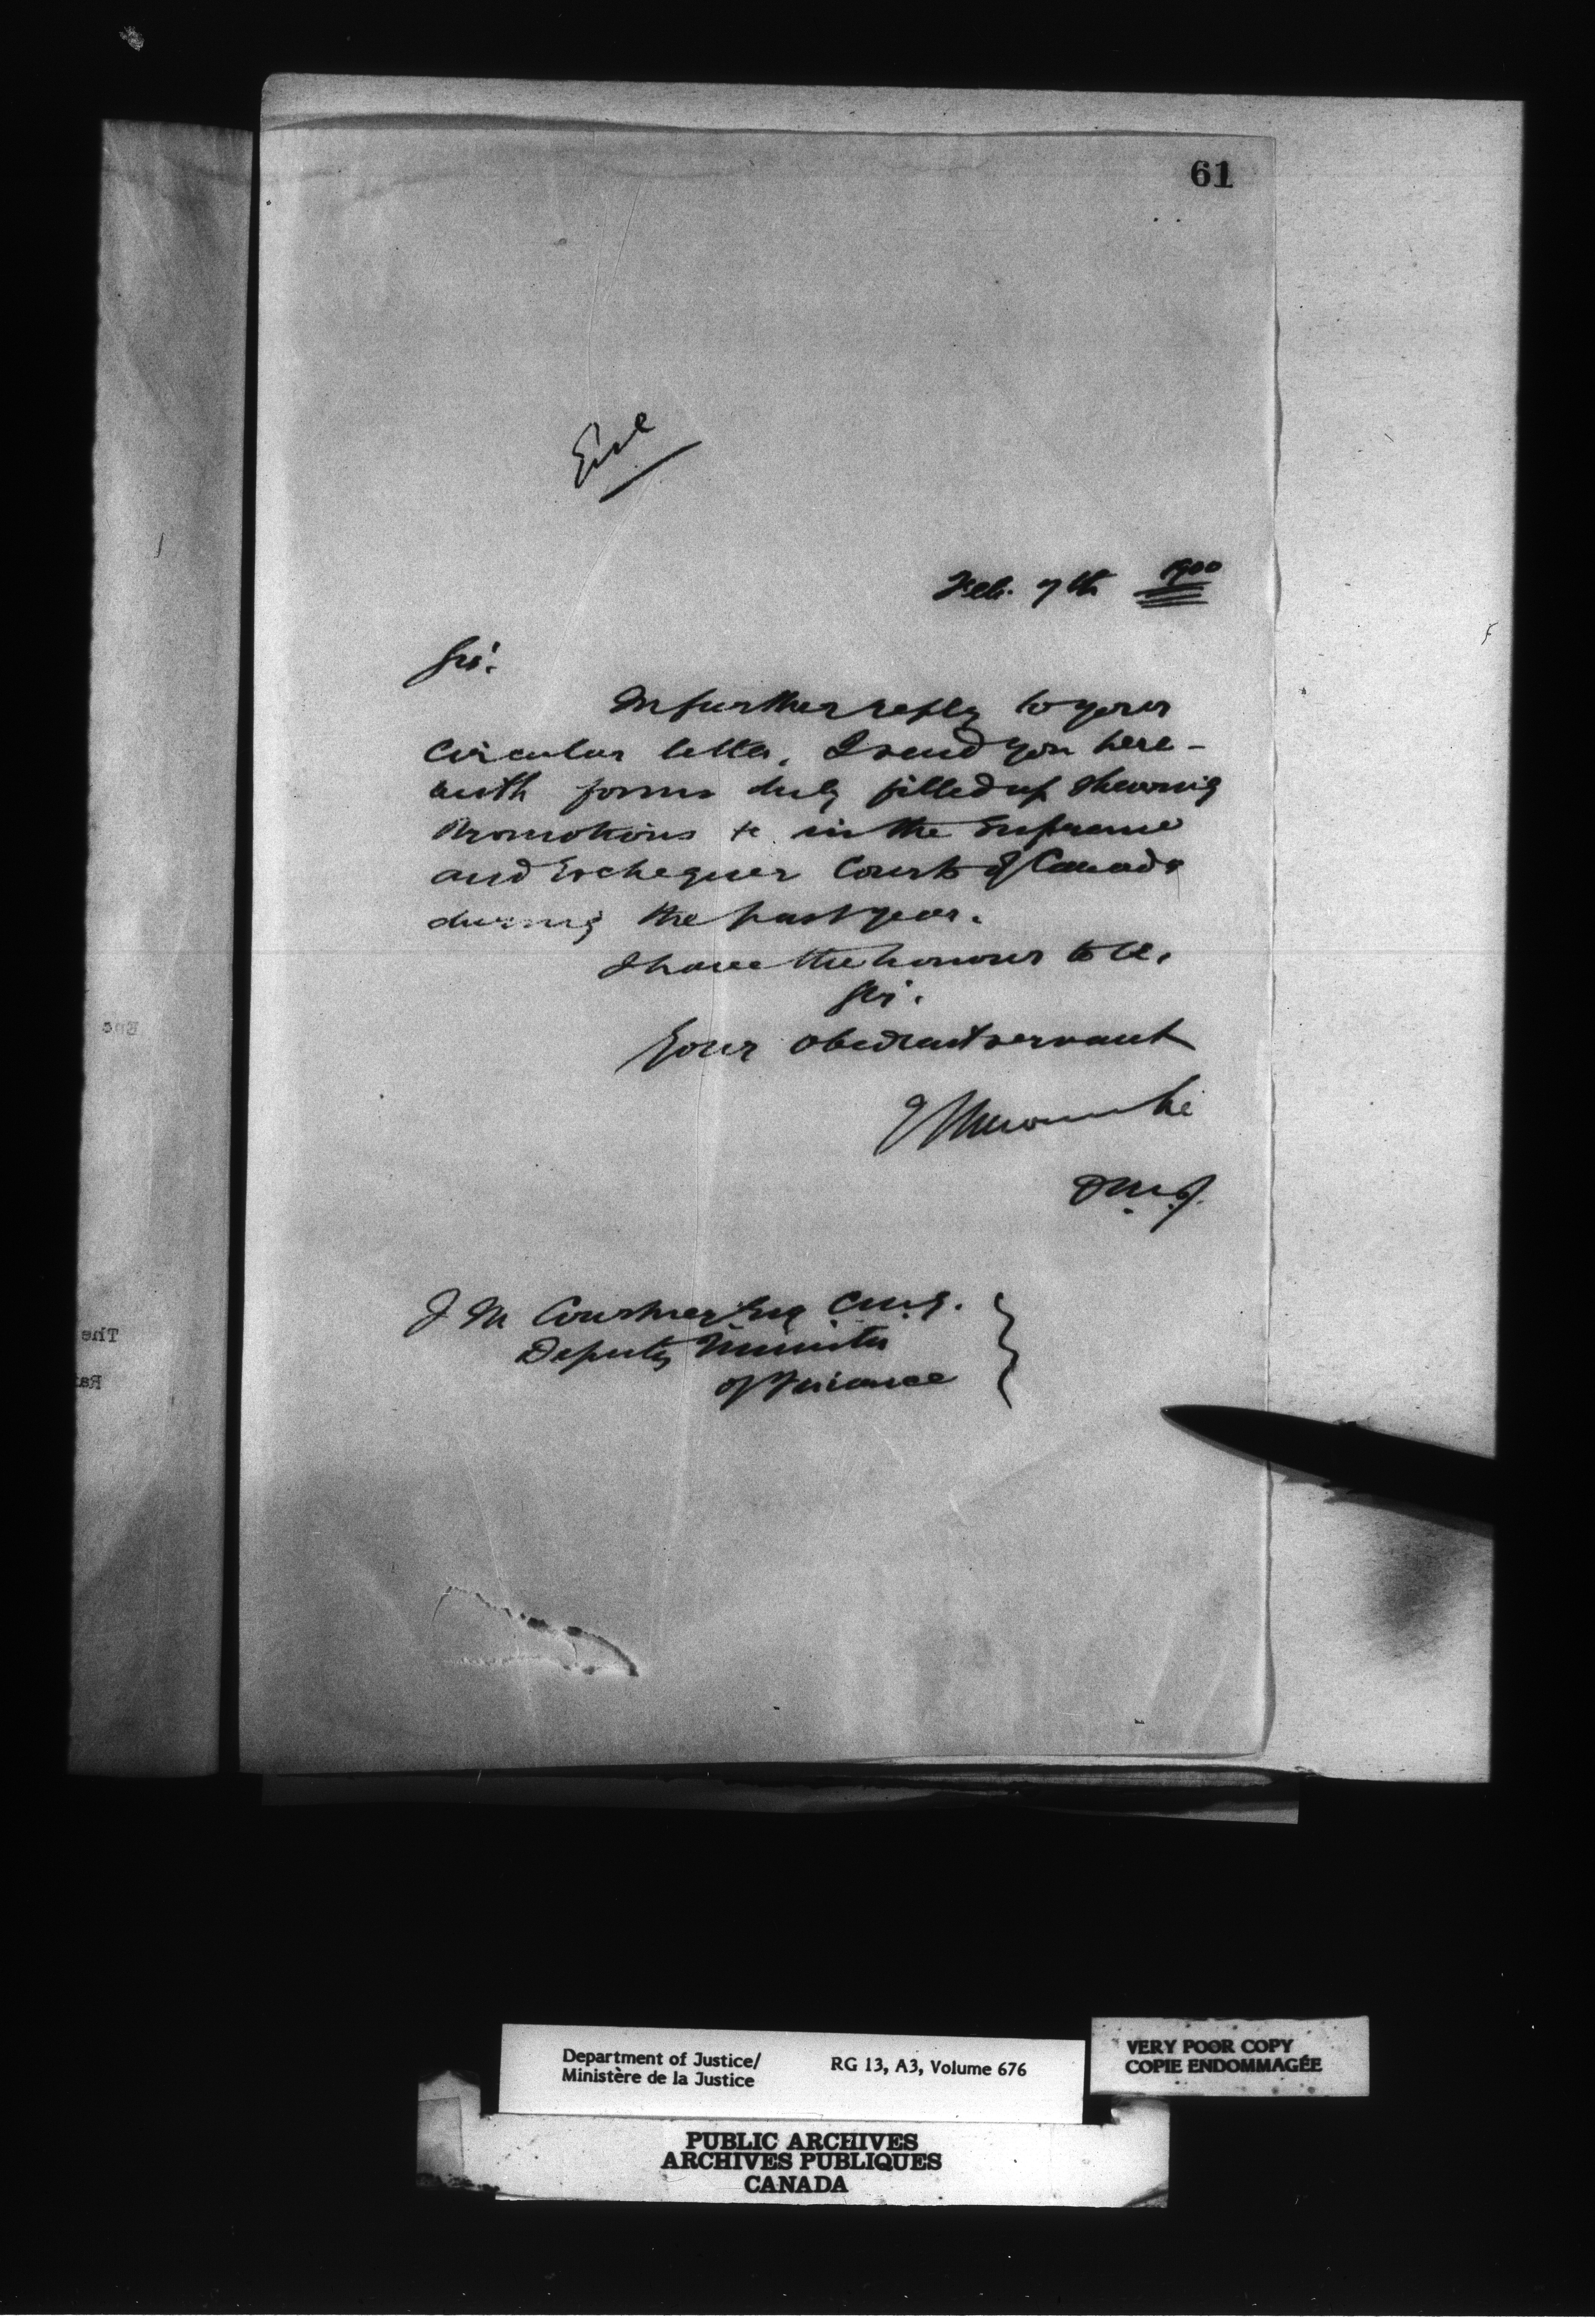 61
Encl
Feb. 7th 1900
Sir:
In further reply to your
circular letter, I send you here-
with forms duly filled up shewing
Promotions &c in the Supreme
and Exchequer Courts of Canada
during the past year.
I have the honour to be,
Sir,
Your obedient servant
E L Newcombe
D.M.J.
J M Courtney Esq C.M.G.
Deputy Minister
of Finance
Enc
The
Ra
Department of Justice/
Ministère de la Justice
RG 13, A3, Volume 676
VERY POOR COPY
COPIE ENDOMMAGÉE
PUBLIC ARCHIVES
ARCHIVES PUBLIQUES
CANADA